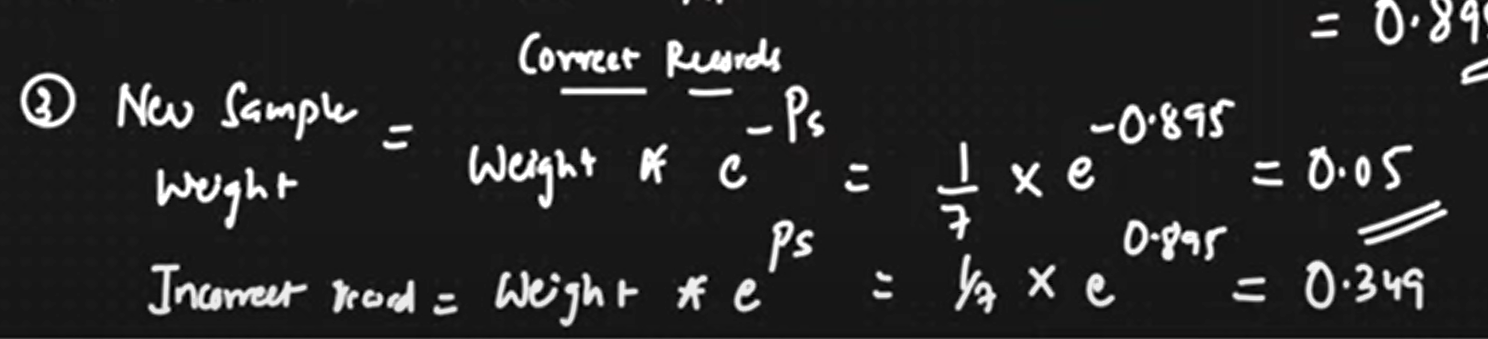 = 0.89
Correct Records
③ New Sample Weight = Weight * e^-Ps = 1/7 x e^-0.895 = 0.05
Incorrect record = Weight * e^Ps = 1/7 x e^0.895 = 0.349